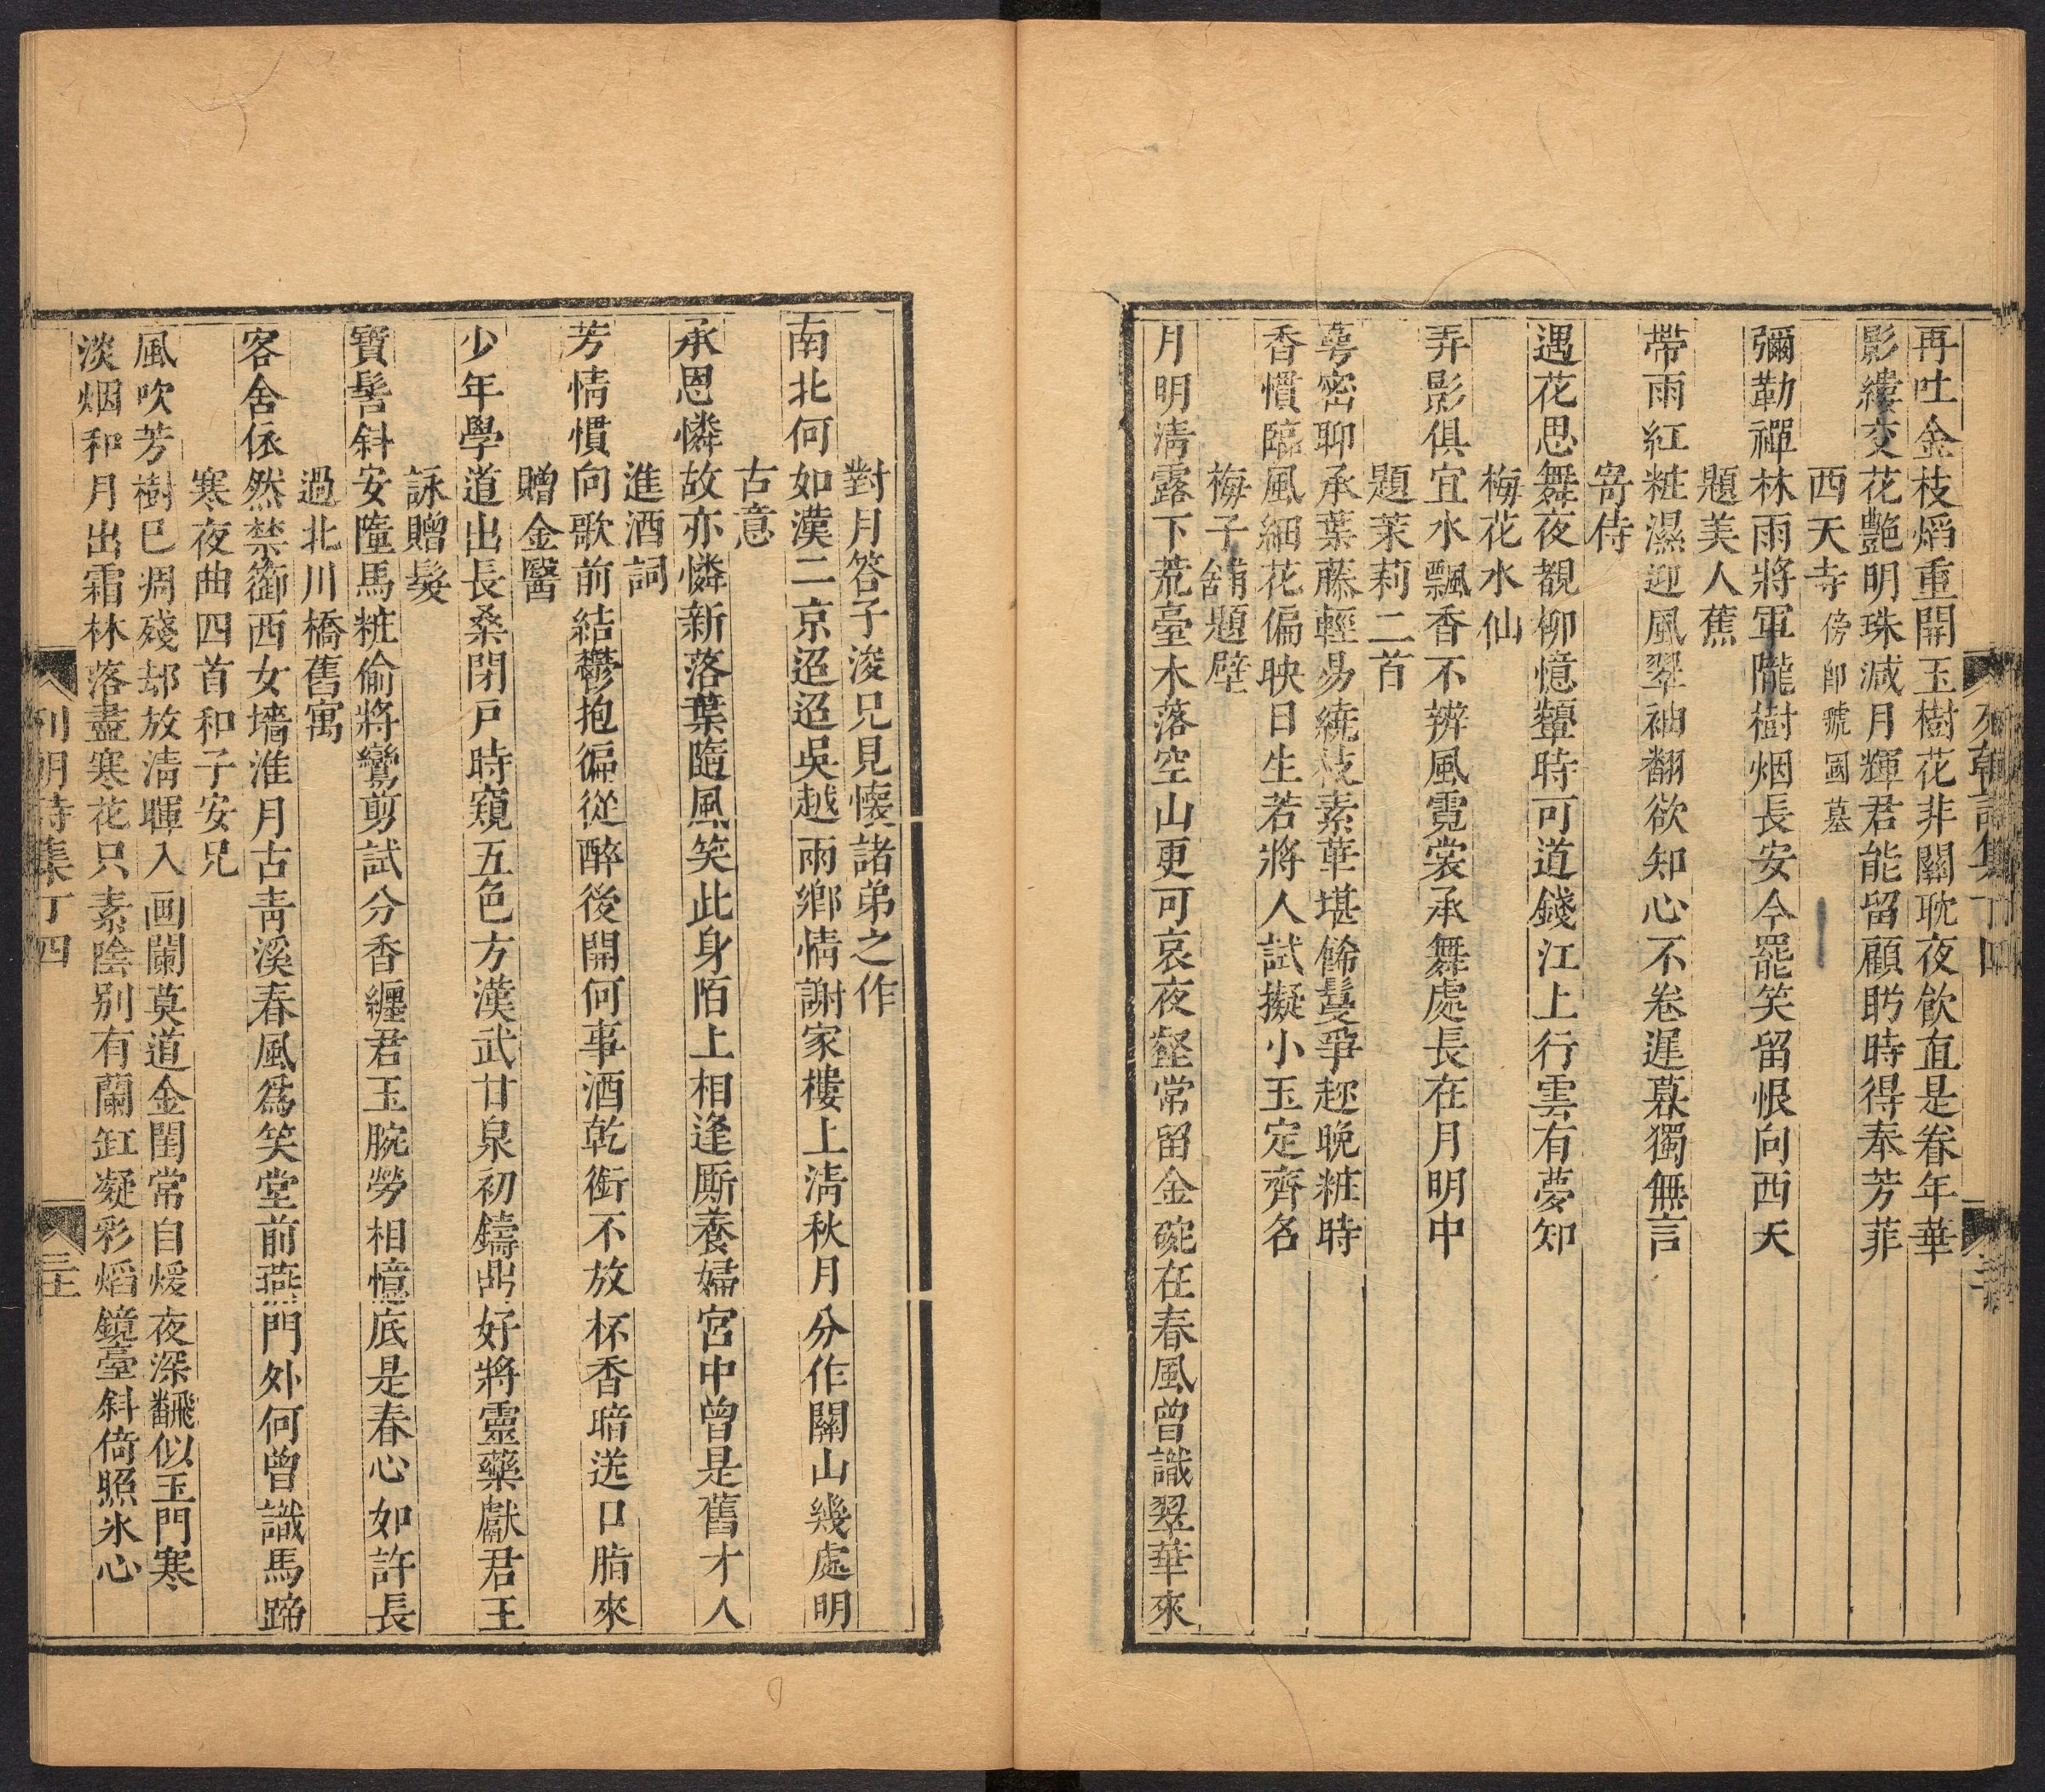 再吐金枝熖重開玉樹花非關耽夜飲直是眷年華
影縷交花艷明珠減月輝君能留顧眄時得奉芳菲
西天寺傍卽虢國墓
彌勒禪林雨將軍隴樹烟長安今罷笑留恨向西天
題美人蕉
帶雨紅粧濕迎風翠袖翻欲知心不卷遲暮獨無言
寄侍
遇花思舞夜覩柳憶顰時可道錢江上行雲有夢知
梅花水仙
弄影俱宜水飄香不辨風霓裳承舞處長在月明中
題茉莉二首
萼密聊承葉藤輕易繞枝素華堪餙鬘爭趂晚粧時
香慣臨風細花偏映日生若將人試擬小玉定齊名
梅子舖題壁
月明淸露下荒臺木落空山更可哀夜壑常留金碗在春風曾識翠華來
列朝詩集丁四
對月答子浚兄見懷諸弟之作
南北何如漢二京迢迢吳越兩鄉情謝家樓上淸秋月分作關山幾處明
古意
承恩憐故亦憐新落葉隨風笑此身陌上相逢厮養婦宮中曾是舊才人
進酒詞
芳情慣向歌前結鬱抱徧從醉後開何事酒乾銜不放杯香暗送口脂來
贈金醫
少年學道出長桑閉戸時窺五色方漢武甘泉初鑄鼎好將靈藥獻君王
詠贈髮
寶髻斜安墮馬粧偷將鸞剪試分香纒君玉腕勞相憶底是春心如許長
過北川橋舊寓
客舍依然禁籞西女墻淮月古靑溪春風爲笑堂前燕門外何曾識馬蹄
寒夜曲四首和子安兄
風吹芳樹巳凋殘却放淸暉入画闌莫道金閨常自煖夜深飜似玉門寒
淡烟和月出霜林落盡寒花只素陰别有蘭缸凝彩熖鏡臺斜倚照氷心
列朝詩集丁四